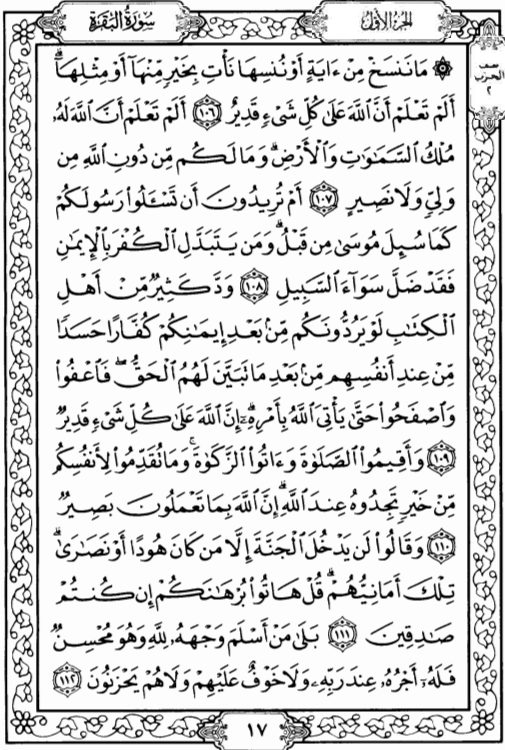 سُورَةُ البَقَرَةِ
الجُزءُ الأَوَّلُ
نصف
الحزب
٢
۞ مَا نَنسَخْ مِنْ ءَايَةٍ أَوْ نُنسِهَا نَأْتِ بِخَيْرٍ مِّنْهَآ أَوْ مِثْلِهَآۗ
أَلَمْ تَعْلَمْ أَنَّ ٱللَّهَ عَلَىٰ كُلِّ شَىْءٍ قَدِيرٌ ١٠٦ أَلَمْ تَعْلَمْ أَنَّ ٱللَّهَ لَهُۥ
مُلْكُ ٱلسَّمَٰوَٰتِ وَٱلْأَرْضِۗ وَمَا لَكُم مِّن دُونِ ٱللَّهِ مِن
وَلِىٍّ وَلَا نَصِيرٍ ١٠٧ أَمْ تُرِيدُونَ أَن تَسْـَٔلُوا۟ رَسُولَكُمْ
كَمَا سُئِلَ مُوسَىٰ مِن قَبْلُۗ وَمَن يَتَبَدَّلِ ٱلْكُفْرَ بِٱلْإِيمَٰنِ
فَقَدْ ضَلَّ سَوَآءَ ٱلسَّبِيلِ ١٠٨ وَدَّ كَثِيرٌ مِّنْ أَهْلِ
ٱلْكِتَٰبِ لَوْ يَرُدُّونَكُم مِّنۢ بَعْدِ إِيمَٰنِكُمْ كُفَّارًا حَسَدًا
مِّنْ عِندِ أَنفُسِهِم مِّنۢ بَعْدِ مَا تَبَيَّنَ لَهُمُ ٱلْحَقُّۖ فَٱعْفُوا۟
وَٱصْفَحُوا۟ حَتَّىٰ يَأْتِىَ ٱللَّهُ بِأَمْرِهِۦٓۗ إِنَّ ٱللَّهَ عَلَىٰ كُلِّ شَىْءٍ قَدِيرٌ
١٠٩ وَأَقِيمُوا۟ ٱلصَّلَوٰةَ وَءَاتُوا۟ ٱلزَّكَوٰةَۚ وَمَا تُقَدِّمُوا۟ لِأَنفُسِكُم
مِّنْ خَيْرٍ تَجِدُوهُ عِندَ ٱللَّهِۗ إِنَّ ٱللَّهَ بِمَا تَعْمَلُونَ بَصِيرٌ
١١٠ وَقَالُوا۟ لَن يَدْخُلَ ٱلْجَنَّةَ إِلَّا مَن كَانَ هُودًا أَوْ نَصَٰرَىٰۗ
تِلْكَ أَمَانِيُّهُمْۗ قُلْ هَاتُوا۟ بُرْهَٰنَكُمْ إِن كُنتُمْ
صَٰدِقِينَ ١١١ بَلَىٰ مَنْ أَسْلَمَ وَجْهَهُۥ لِلَّهِ وَهُوَ مُحْسِنٌ
فَلَهُۥٓ أَجْرُهُۥ عِندَ رَبِّهِۦ وَلَا خَوْفٌ عَلَيْهِمْ وَلَا هُمْ يَحْزَنُونَ ١١٢
١٧